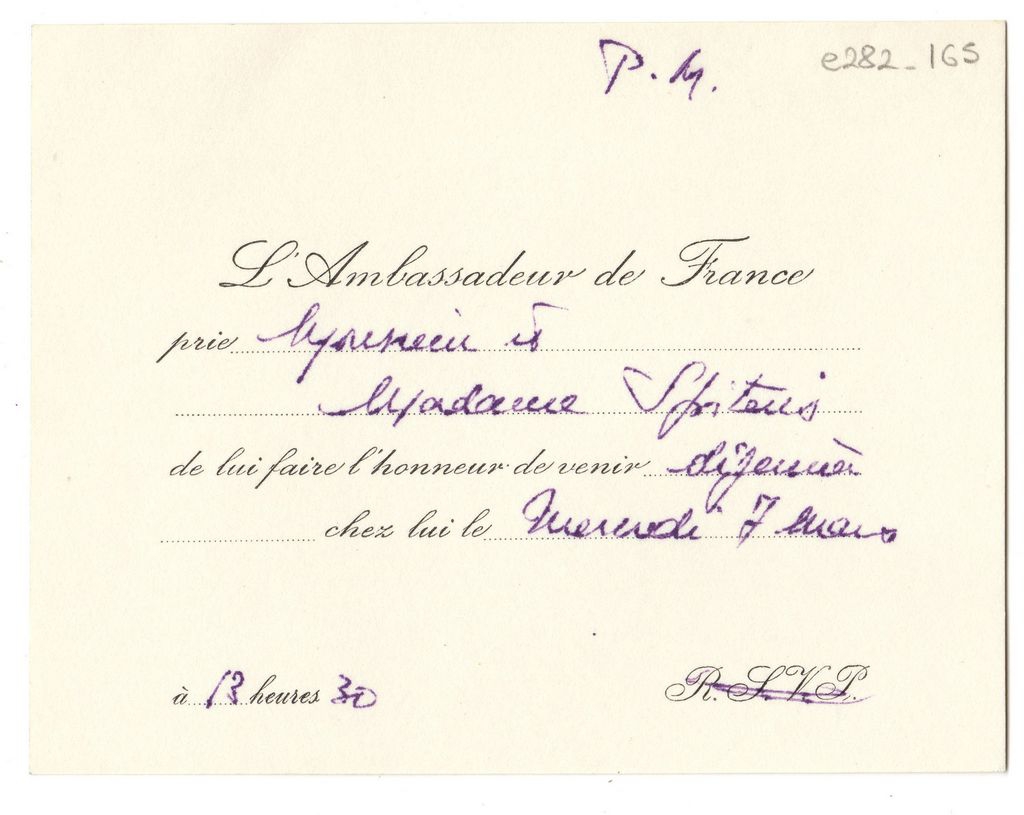 P. M.
e282_165
L'Ambassadeur de France
prie Monsieur et
Madame Spiteris
de lui faire l'honneur de venir déjeuner
chez lui le Mercredi 7 Mars
à 13 heures 30
R.S.V.P.